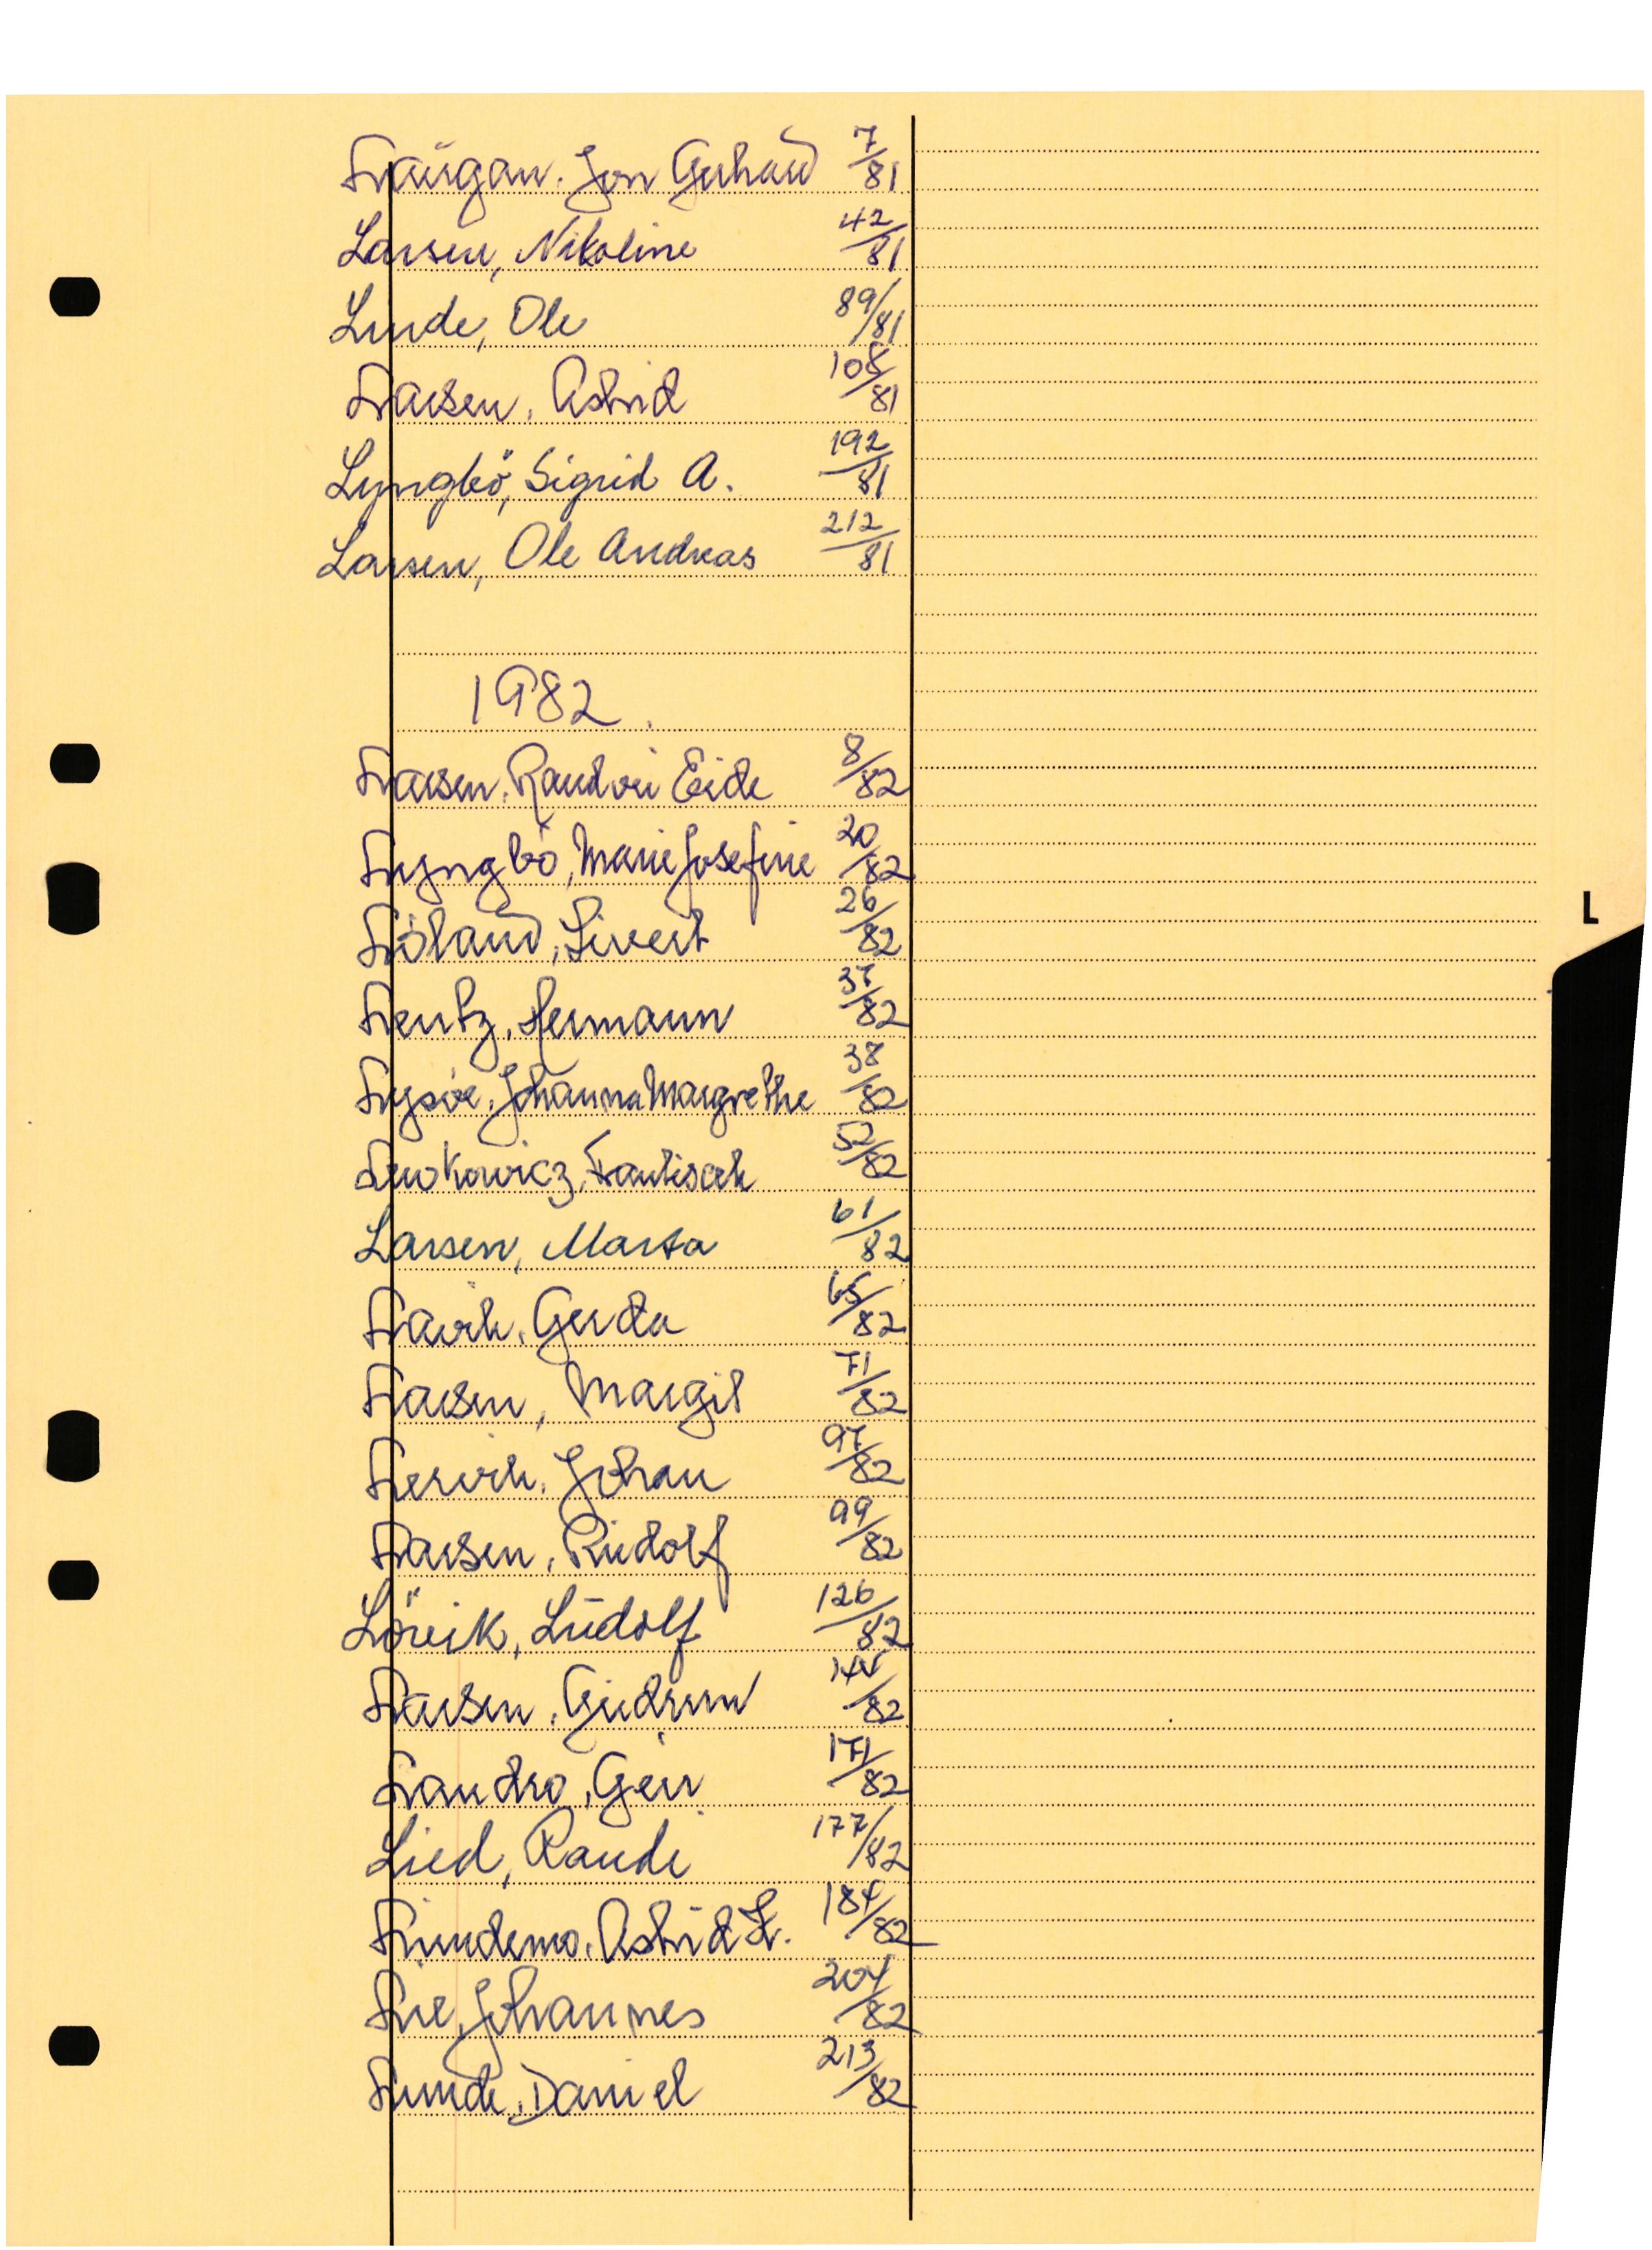 Laugan. Jon Gerhard 7/81
Larsen, Nikoline 42/81
Linde, Ole 89/81
Larsen, Astrid 108/81
Lyngbö, Sigrid A. 192/81
Larsen, Ole Andreas 212/81
1982.
Larsen, Randvei Eide 8/82
Lyngbö, Marie Josefine 20/82
Löland, Sivert 26/82
Lentz, Hermann 37/82
Lysöe, Johanna Margrethe 38/82
52/82
Larsen, Marta 61/82
Lavik, Gerda 65/82
Larsen, Margit 71/82
Lervik, Johan 97/82
Larsen, Rudolf 99/82
Löveik, Ludolf 126/82
Larsen, Gudrun 144/82
Landro, Geir 171/82
Lied, Randi 177/82
Lundemo, Astrid L. 184/82
Lie, Johannes 204/82
Lunde, Daniel 213/82
L